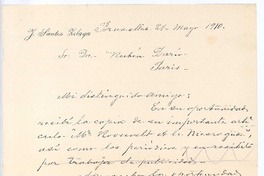 J. Santos Zelaya
Bruxelles 28. Mayo 1910.
Sr. Dr. Rubén Darío
Paris.
Mi distinguido Amigo:
En su oportunidad
recibí la copia de su importante artí
culo Mr. Roosevelt á Nicaragua,
así como los periódicos y un recibito
por trabajos de publicidad